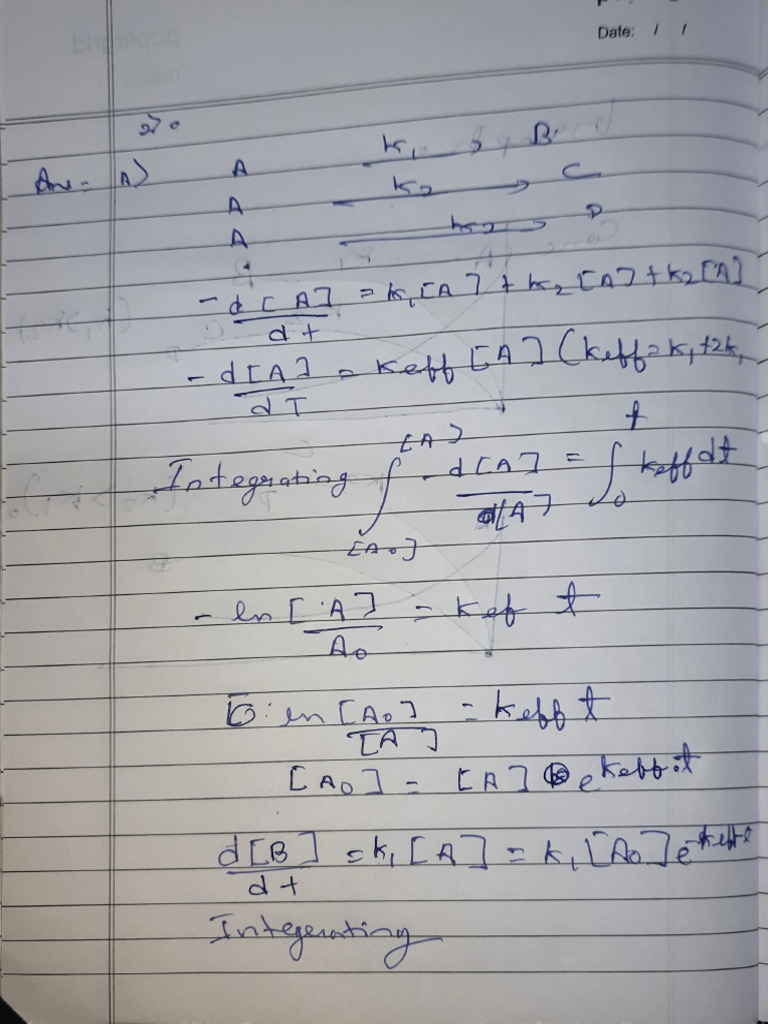 Date: / /
Ans - A) A k₁ → B
A k₂ → C
A k₂ → D
- d[A]/dt = k₁[A] + k₂[A] + k₂[A]
- d[A]/dT = keff [A] (keff = k₁ + 2k,
Integrating ∫ [A₀] [A] - d[A]/d[A] = ∫ 0 t keff dt
- ln [A]/A₀ = kef t
ln [A₀]/[A] = keff t
[A₀] = [A] e^keff.t
d[B]/dt = k₁[A] = k₁[A₀] e^-keff t
Integerating